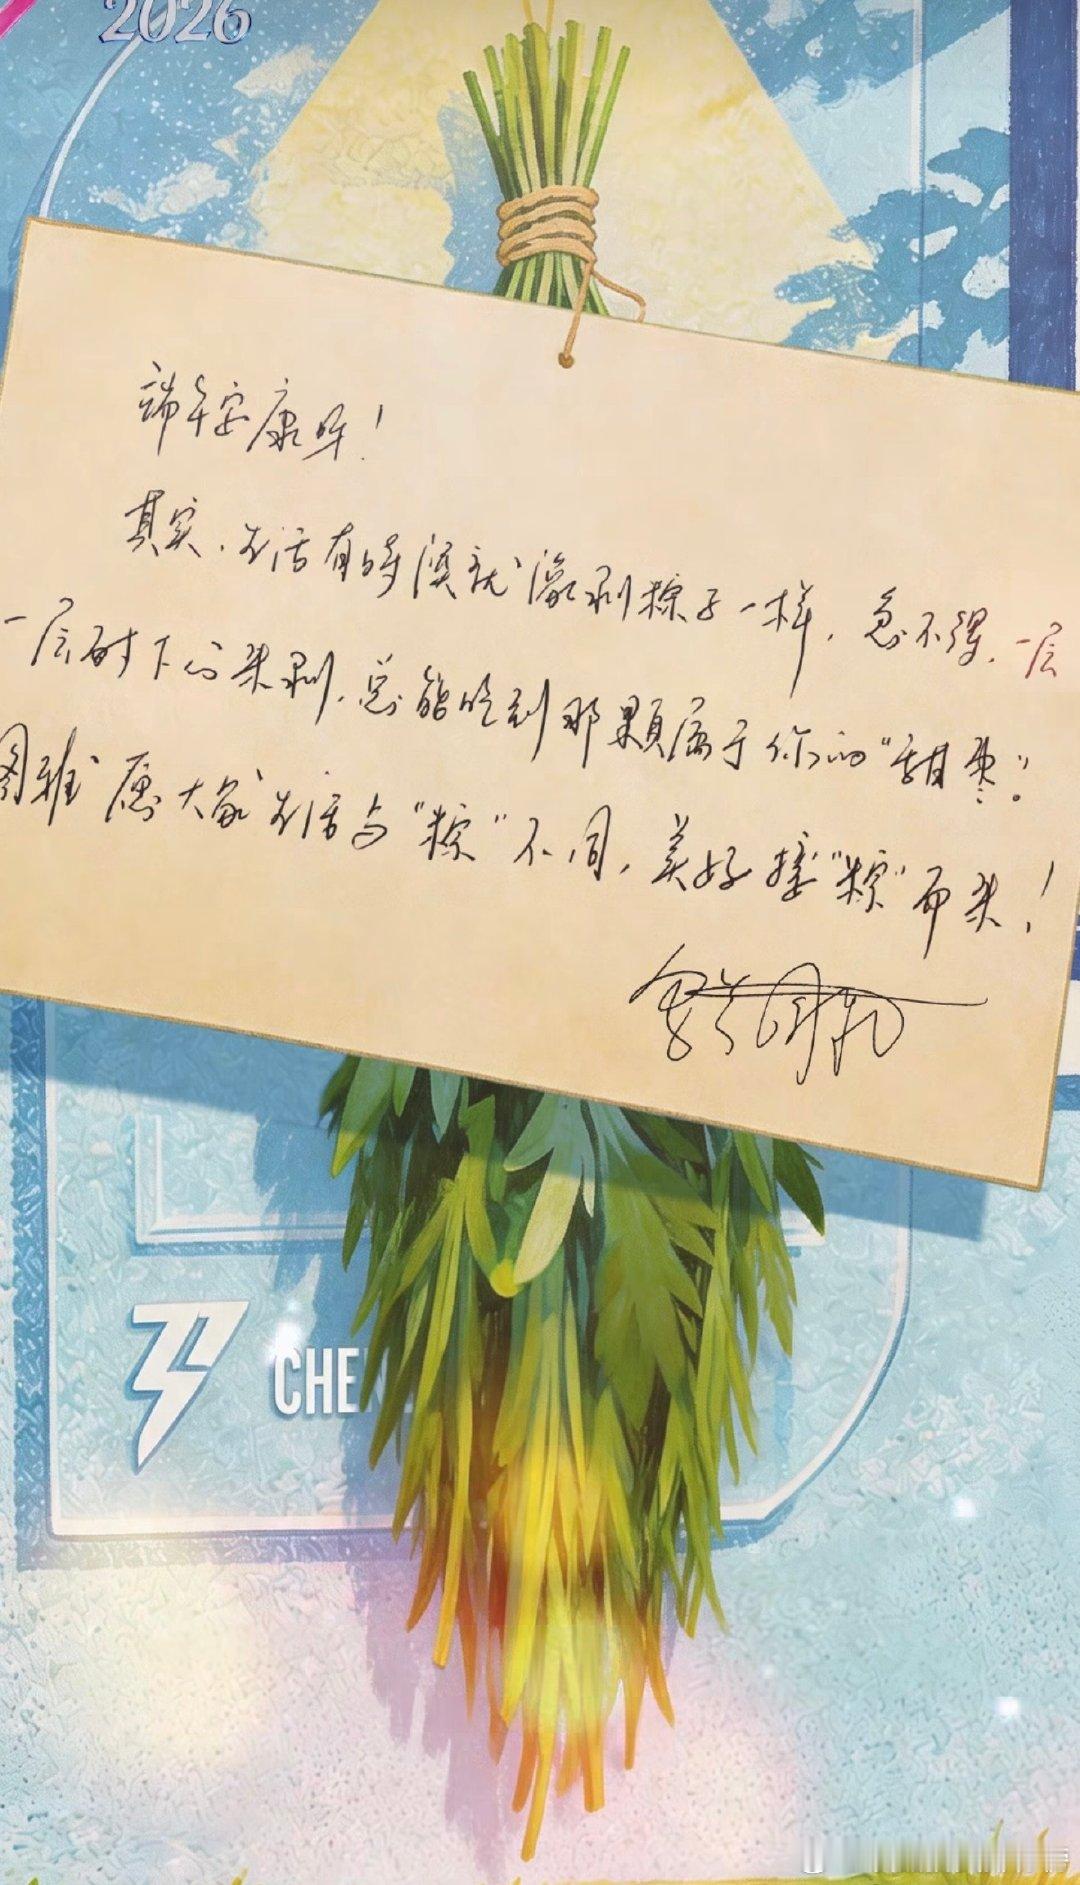 2026
端午安康呀！
其实，生活有时候就像剥粽子一样，急不得，一层
一层耐下心来剥，总能吃到那颗属于你的“甜枣”。
图雅愿大家生活与“粽”不同，美好接“粽”而来！
CHE